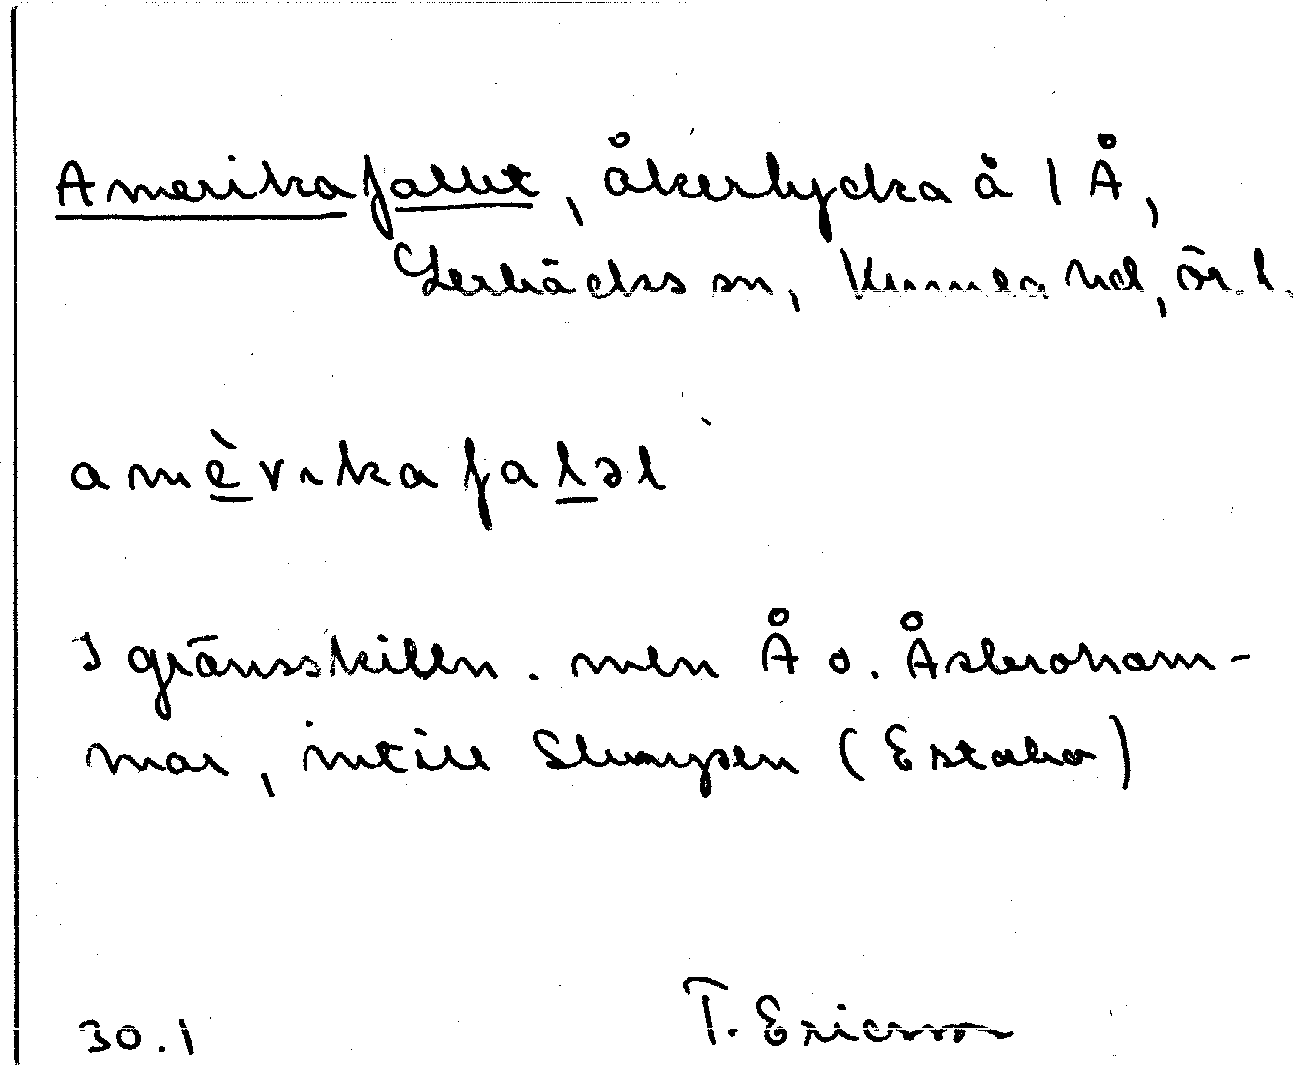 Amerikafallet, åkerlycka å 1 Å,
Lerbäcks sn, Kumla hd, Ör. l.
amèrıkafaləl
I gränsskilln. mln Å o. Åsbroham-
mar, intill Slumpen (Estabo)
30.1 T. Ericsson